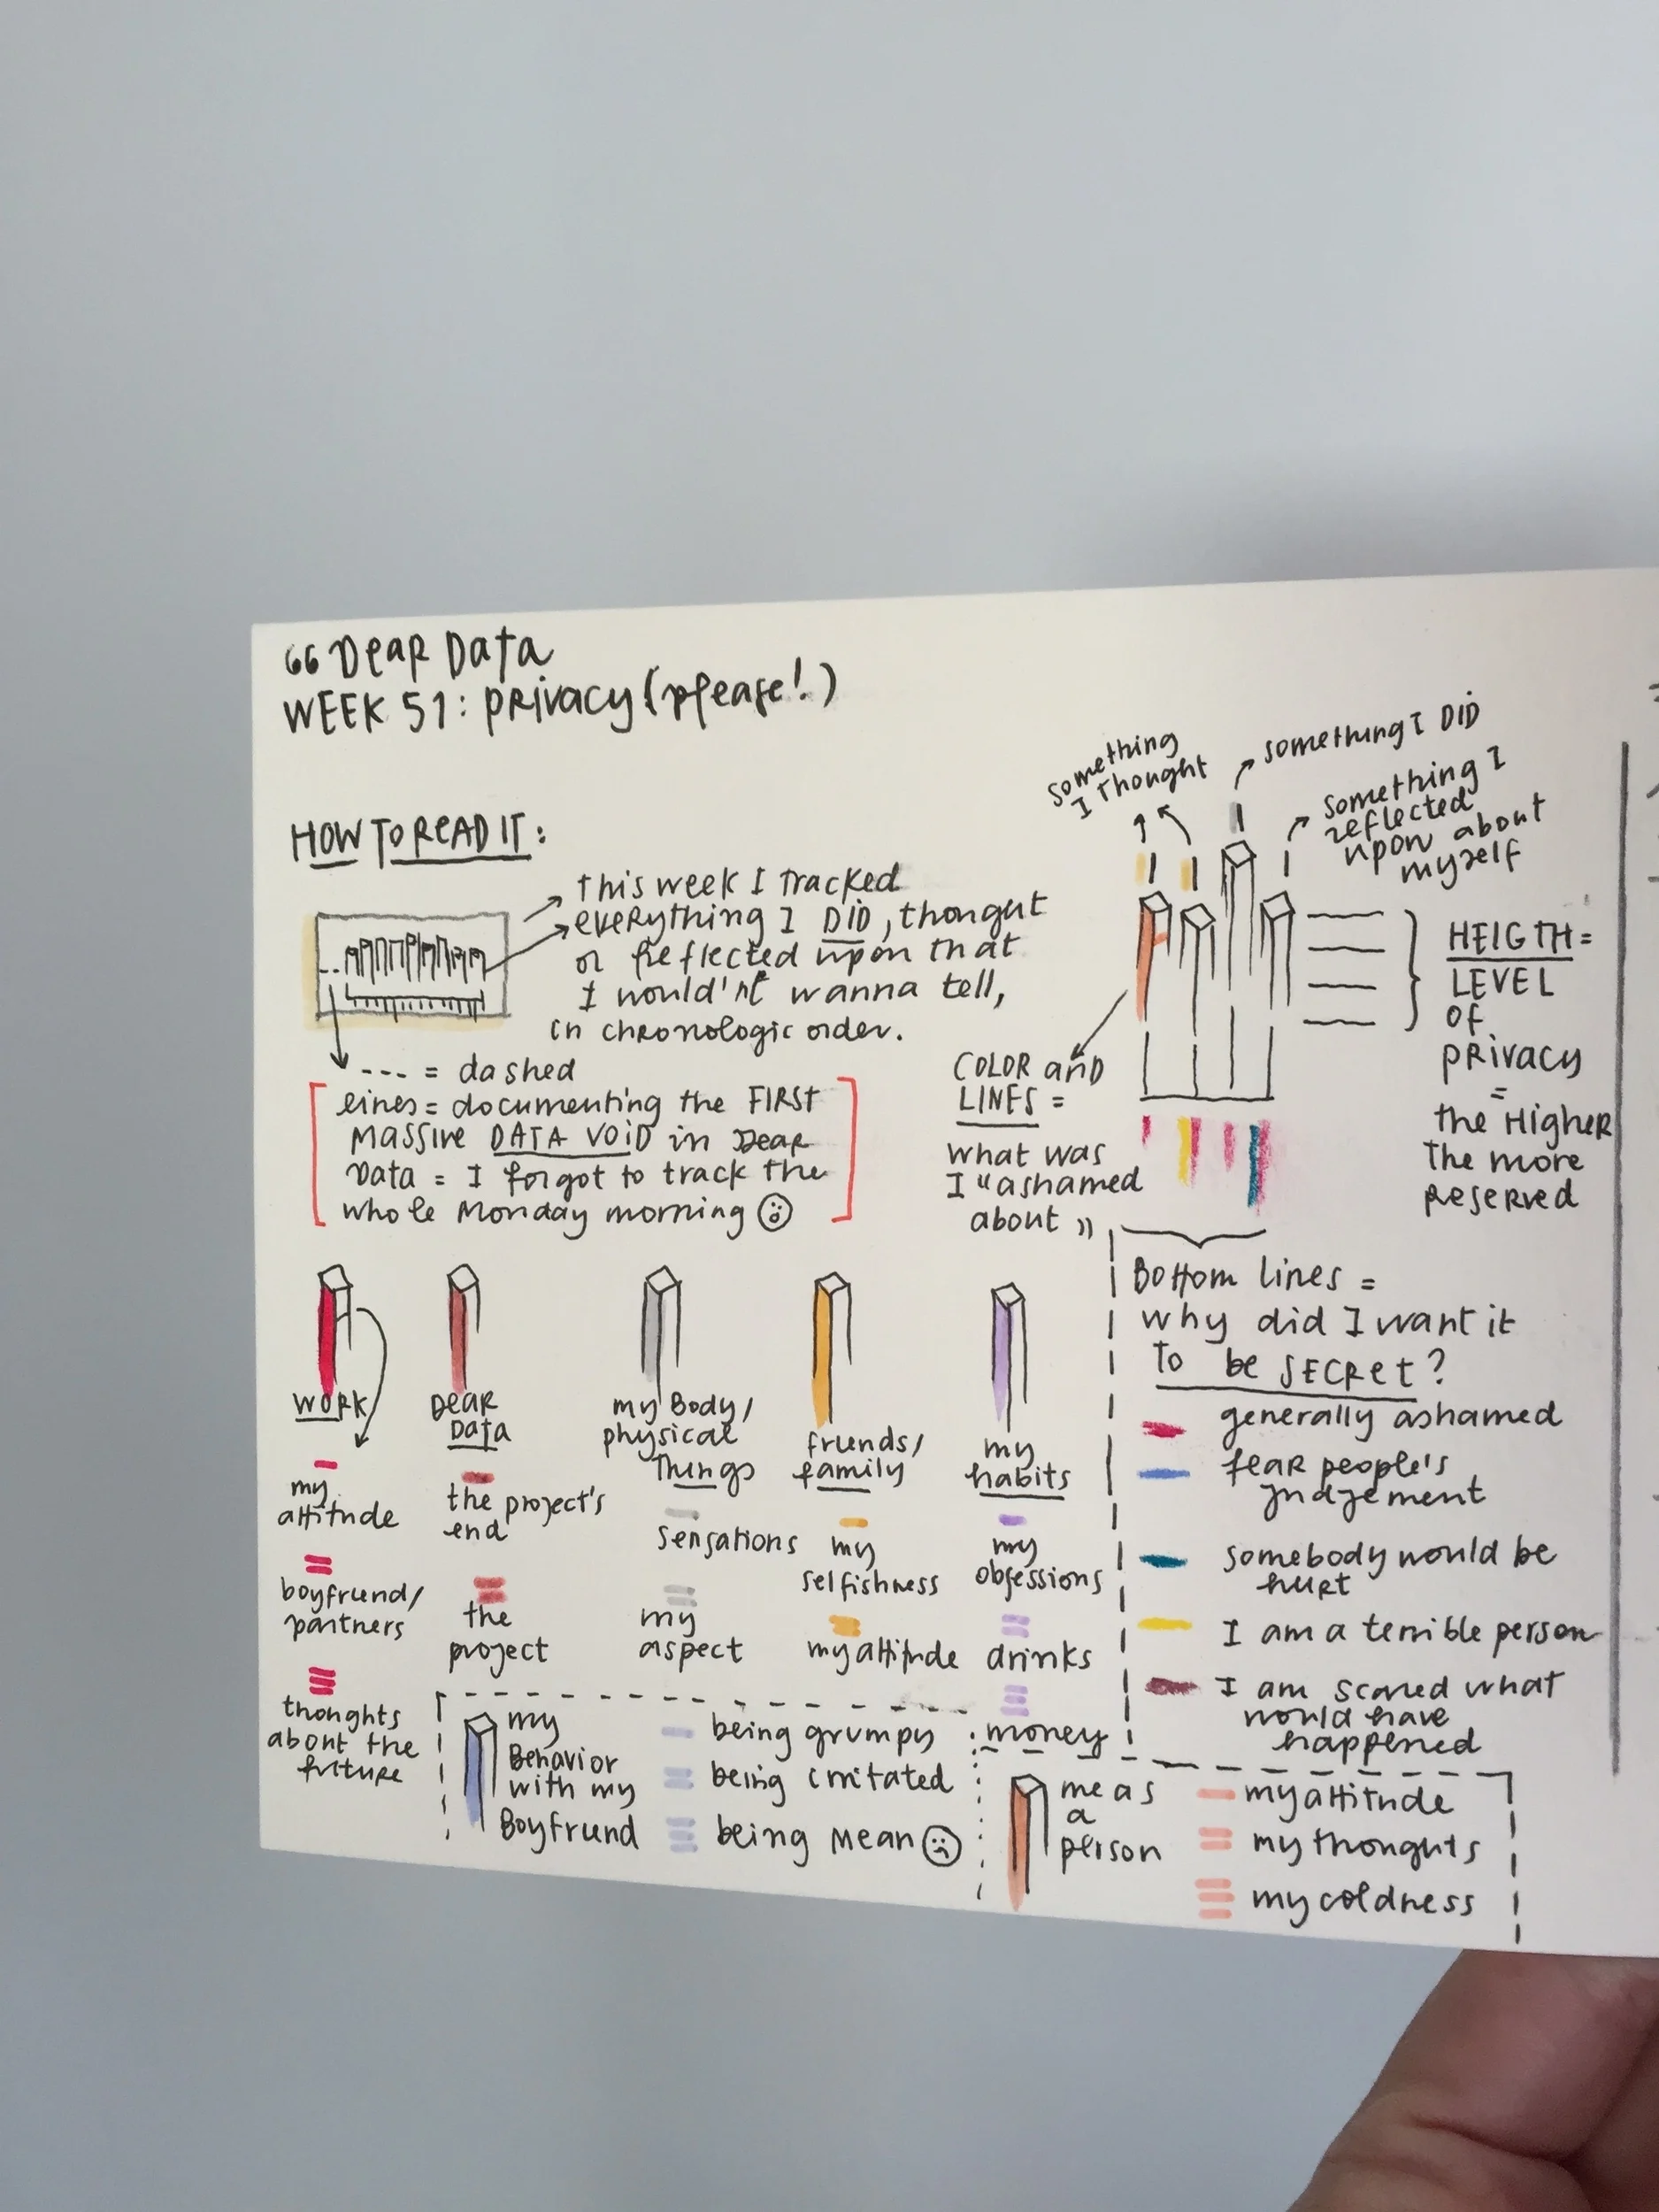 " Dear Data
WEEK 51: privacy (please!)
HOW TO READ IT:
this week I tracked
everything I DID, thought
or reflected upon that
I would'nt wanna tell,
in chronologic order.
--- = dashed
lines = documenting the FIRST
massive DATA VOID in Dear
Data = I forgot to track the
whole Monday morning
something
I thought
something I DID
something I
reflected
upon about
myself
HEIGTH =
LEVEL
of
privacy
=
the Higher
the more
reserved
COLOR and
LINES =
what was
I "ashamed
about"
Bottom lines =
why did I want it
to be SECRET?
generally ashamed
fear people's
judgement
somebody would be
hurt
I am a terrible person
I am scared what
would have
happened
WORK
my
attitude
boyfriend/
partners
thoughts
about the
future
DEAR
DATA
the project's
end
the
project
my Body/
physical
things
sensations
my
aspect
friends/
family
my
selfishness
my attitude
my
habits
my
obsessions
drinks
money
my
Behavior
with my
Boyfriend
being grumpy
being irritated
being mean
me as
a
person
my attitude
my thoughts
my coldness